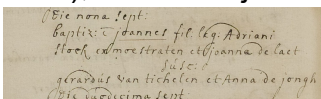 Die nona sept:
baptiz: ē joannes fil. leg. Adriani
Stock ex moestraten et joanna de laet
susc:
gerardus van tichelen et Anna de jongh
Die sept